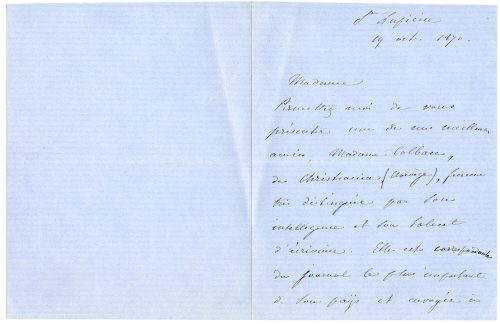 St Lupicin
19 oct. 1870.
Madame
Permettez moi de vous
présenter une de mes meilleures
amies, Madame Colban,
de Christiania (Norvège), femme
très distinguée par son
intelligence et son talent
d'écrivain. Elle est correspondante
du journal le plus important
de son pays et envoyée à